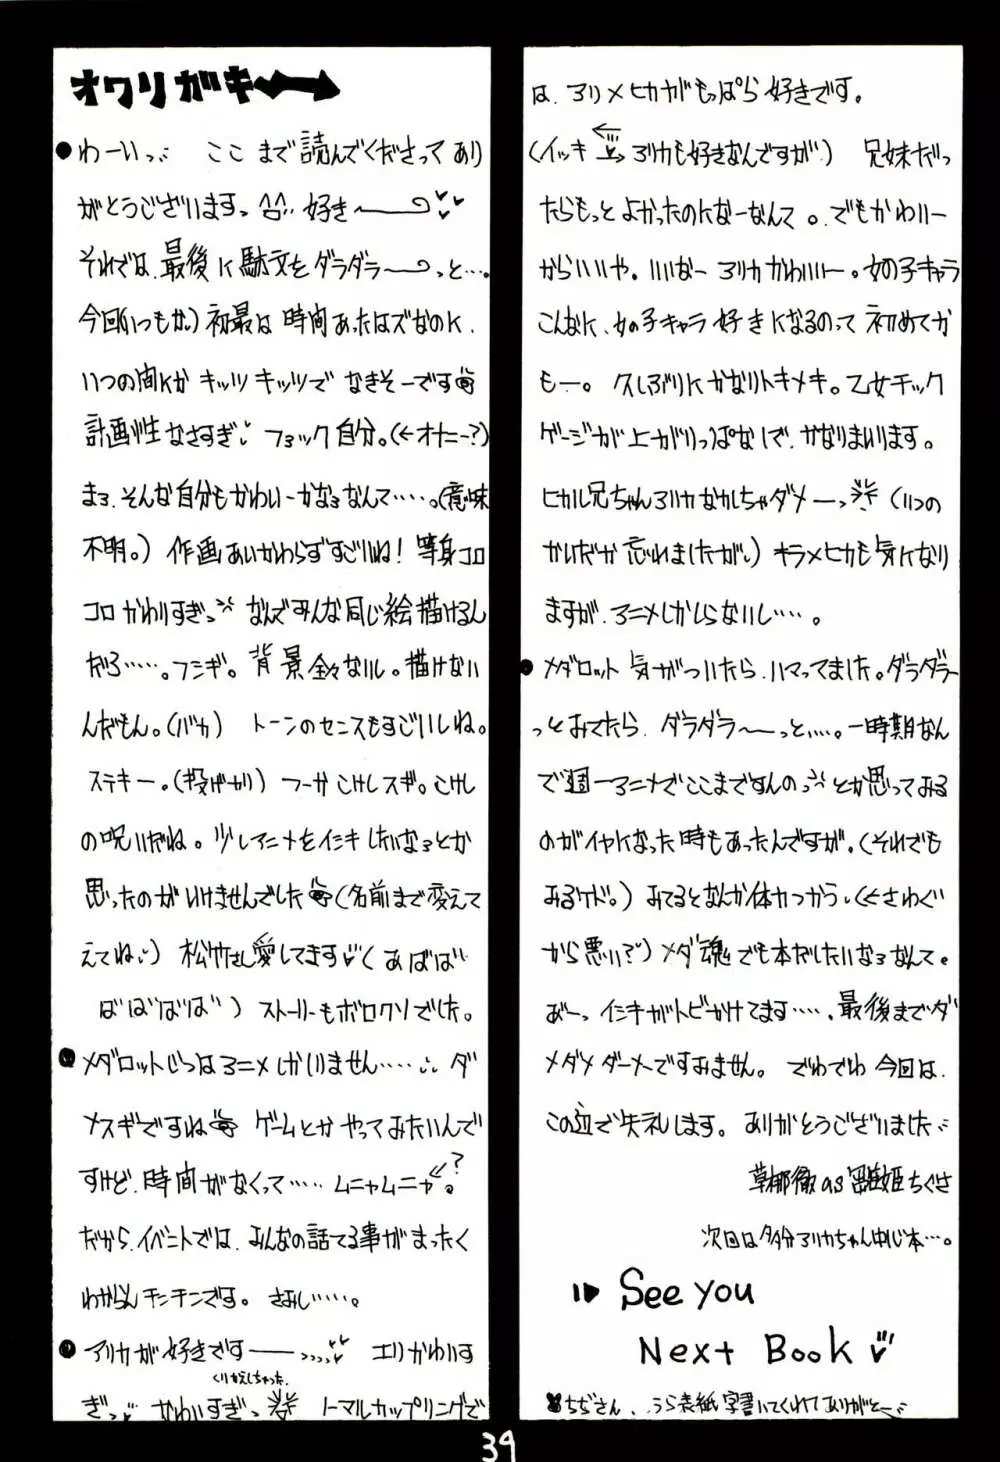 オワリガキ
●わーいっ ここまで読んでくださってあり
がとうございますっ 好き〜
それでは、最後に駄文をダラダラ〜っと…。
今回(いつもか。)初最は時間あったはズなのに、
いつの間にかキッツキッツでなきそーです
計画性なさすぎ フョック自分。(←オナニー?)
まろ、そんな自分もかわいーかなるなんて……。(意味
不明。) 作画あいかわらずすごいね! 等身コロ
コロかわりすぎっ なんでみんな同じ絵描けるん
だろ……。フシギ。背景全々ないし。描けない
んだもん。(バカ) トーンのセンスもすごいしね。
ステキー。(投げやり) フーかこけしスギ。こけし
の呪いだね。少しアニメをイシキしたいなぁとか
思ったのがいけませんでした(名前まで変えて
えてね) 松竹さん愛してます (あばば
ばばばば) ストーリーもボロクソでした。
●メダロットじつはアニメしかしりません…… ダ
メスギですね ゲームとかやってみたいんで
すけど、時間がなくって…… ムニャムニャ?。
だから、イベントでは、みんなの話てる事がまったく
わからんチンチンです。さみし……。
●アリカが好きですー エリかわいす
くりかえしちゃった。
ぎっ かわいすぎっ トーマルカップリングで
は、アリ×ヒカがもっぱら好きです。
(イッキ アリカも好きなんですが) 兄妹だっ
たらもっとよかったのになーなんて。でもかわいー
からいいや。いいなー アリカかわいー。女の子キャラ
こんなに、女の子キャラ好きになるのって初めてか
もー。久しぶりにかなりトキメキ。乙女チック
ゲージが上がりっぱなしで、かなりまいります。
ヒカル兄ちゃんアリカなかしちゃダメーっ (いつの
かいだか忘れましたがし) キラメヒカも気になり
ますが、アニメしかしらないし……。
●メダロット気がついたら、ハマってました。ダラダラ
っとみてたら、ダラダラ〜っと……。一時期なん
で週一アニメでここまですんのっとか思ってみる
のがイヤになった時もあったんですが、(それでも
みるケド。) みてるとなんか体力つかう、(←さわぐ
から悪い?) メダ魂でも本だしたいなぁなんて。
あーっ イシキがトビかけてます……。最後までダ
メダメダーメですみません。でわでわ今回は、
この辺で失礼します。ありがとうございました
草椰徹as雛姫ちぐさ
次回は多分アリカちゃん中心本…。
See you
Next Book
ちぢさん、うら表紙字書いてくれてありがとー
39